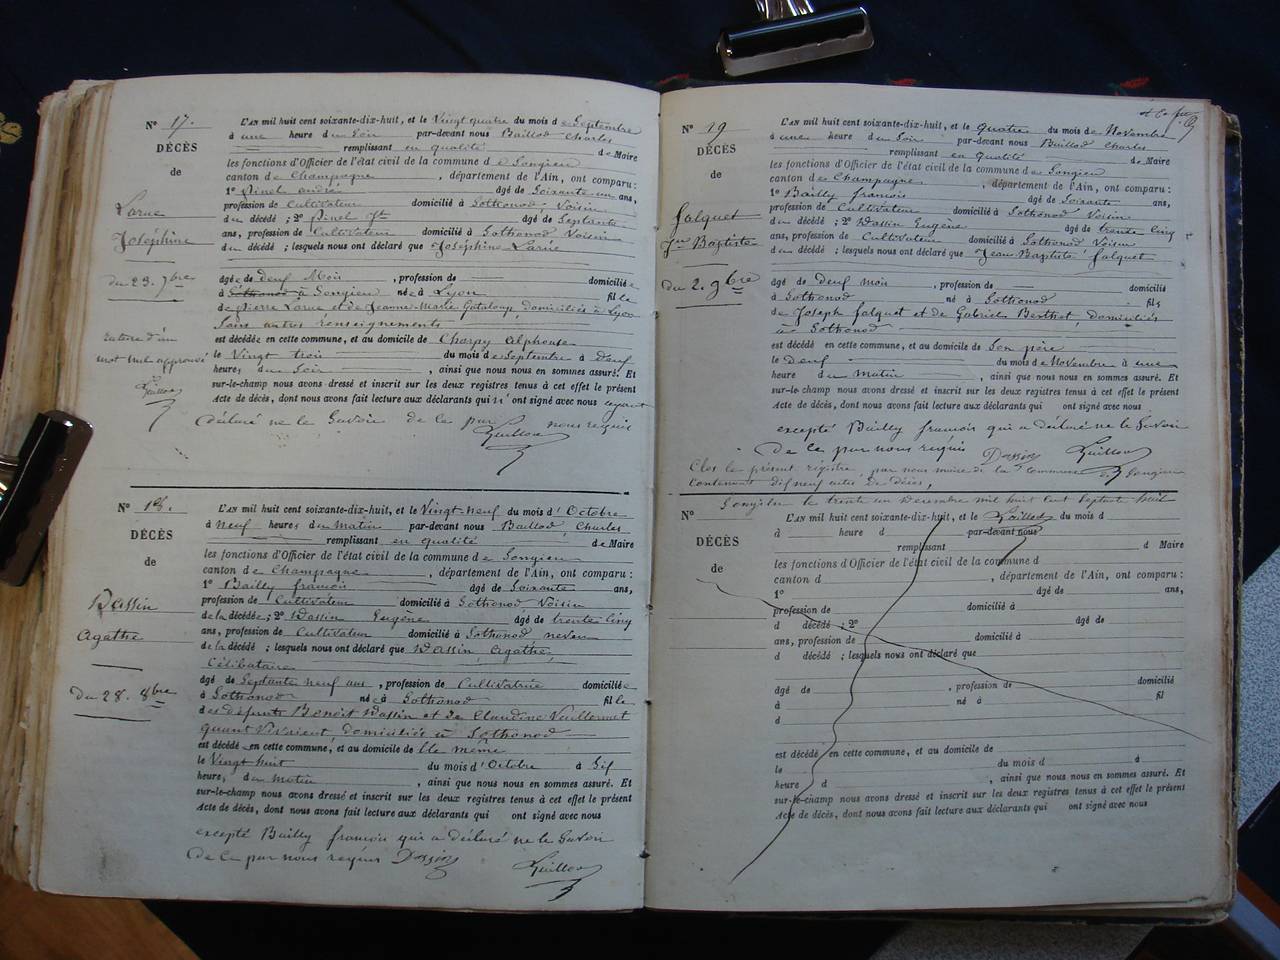 N° 17.
DÉCÈS
de
Larue
Joséphine
du 23. 7bre
Rature d'un
mot nul approuvé
L'AN mil huit cent soixante-dix-huit, et le Vingt quatre du mois de Septembre
à une heure du Soir par-devant nous Baillod Charles
remplissant en qualité de Maire
les fonctions d'Officier de l'état civil de la commune de Songieu
canton de Champagne, département de l'Ain, ont comparu :
1° Pinel andré âgé de Soixante un ans,
profession de Cultivateur domicilié à Sothonod Voisin
du décédé ; 2° Pinel Jh âgé de Septante
ans, profession de Cultivateur domicilié à Sothonod Voisin
du décédé ; lesquels nous ont déclaré que Joséphine Larue
âgée de deuf Mois, profession de domiciliée
à Sothonod à Songieu née à Lyon fille
de pierre Larue et de Jeanne-Marie Gataloup, Domiciliés à Lyon
Sans autres renseignements
est décédée en cette commune, et au domicile de Charpy Alphonse
le Vingt trois du mois de Septembre à deuf
heures, du Soir, ainsi que nous nous en sommes assuré. Et
sur-le-champ nous avons dressé et inscrit sur les deux registres tenus à cet effet le présent
Acte de décès, dont nous avons fait lecture aux déclarants qui n'ont signé avec nous ayant
déclaré ne le Savoir de ce par nous requis
N° 18.
DÉCÈS
de
Dassin
Agathe
Du 28. 8bre
L'AN mil huit cent soixante-dix-huit, et le Vingt-neuf du mois d'Octobre
à neuf heures du matin par-devant nous Baillod Charles
remplissant en qualité de Maire
les fonctions d'Officier de l'état civil de la commune de Songieu
canton de Champagne, département de l'Ain, ont comparu :
1° Bailly framois âgé de Soixante ans,
profession de Cultivateur domicilié à Sothonod Voisin
de la décédée ; 2° Dassin Eugène âgé de trente cinq
ans, profession de Cultivateur domicilié à Sothonod neveu
de la décédé ; lesquels nous ont déclaré que Dassin Agathe,
Célibataire
âgé de Septante neuf ans, profession de Cultivatrice domiciliée
à Sothonod née à Sothonod fille
des défunts Benoît Dassin et de Claudine Vuillermet
quant Vivaient, domiciliés à Sothonod
est décédé en cette commune, et au domicile de Elle même
le Vingt huit du mois d'Octobre à Dif
heure, du matin, ainsi que nous nous en sommes assuré. Et
sur-le-champ nous avons dressé et inscrit sur les deux registres tenus à cet effet le présent
Acte de décès, dont nous avons fait lecture aux déclarants qui ont signé avec nous
excepté Bailly framois qui a déclaré ne le Savoir
de ce par nous requis Dassin
N° 19
DÉCÈS
de
Falquet
Jn Baptiste
Du 2. 9bre
L'AN mil huit cent soixante-dix-huit, et le quatre du mois de Novembre
à une heure du Soir par-devant nous Baillod Charles
remplissant en qualité de Maire
les fonctions d'Officier de l'état civil de la commune de Songieu
canton de Champagne, département de l'Ain, ont comparu :
1° Bailly framois âgé de Soixante ans,
profession de Cultivateur domicilié à Sothonod Voisin
du décédé ; 2° Dassin Eugène âgé de trente cinq
ans, profession de Cultivateur domicilié à Sothonod Voisin
du décédé ; lesquels nous ont déclaré que Jean Baptiste Falquet
âgé de Deuf mois, profession de domicilié
à Sothonod né à Sothonod fils
de Joseph Falquet et de Gabriel Berthet, domiciliés
à Sothonod
est décédé en cette commune, et au domicile de Son père
le Deuf du mois de Novembre à une
heure du matin, ainsi que nous nous en sommes assuré. Et
sur-le-champ nous avons dressé et inscrit sur les deux registres tenus à cet effet le présent
Acte de décès, dont nous avons fait lecture aux déclarants qui ont signé avec nous
excepté Bailly framois qui a déclaré ne le Savoir
de ce par nous requis Dassin
Clos le présent registre par nous maire de la Commune de Songieu
contenant dif neuf actes de décès,
Songieu le trente un Décembre mil huit cent septante huit
N°
DÉCÈS
de
L'AN mil huit cent soixante-dix-huit, et le du mois d
à heure d par-devant nous
remplissant d Maire
les fonctions d'Officier de l'état civil de la commune d
canton d, département de l'Ain, ont comparu :
1° âgé de ans,
profession de domicilié à
d décédé ; 2° âgé de
ans, profession de domicilié à
d décédé ; lesquels nous ont déclaré que
âgé de, profession de domicilié
à né à fil
d
est décédé en cette commune, et au domicile de
le du mois d à
heure d, ainsi que nous nous en sommes assuré. Et
sur-le-champ nous avons dressé et inscrit sur les deux registres tenus à cet effet le présent
Acte de décès, dont nous avons fait lecture aux déclarants qui ont signé avec nous